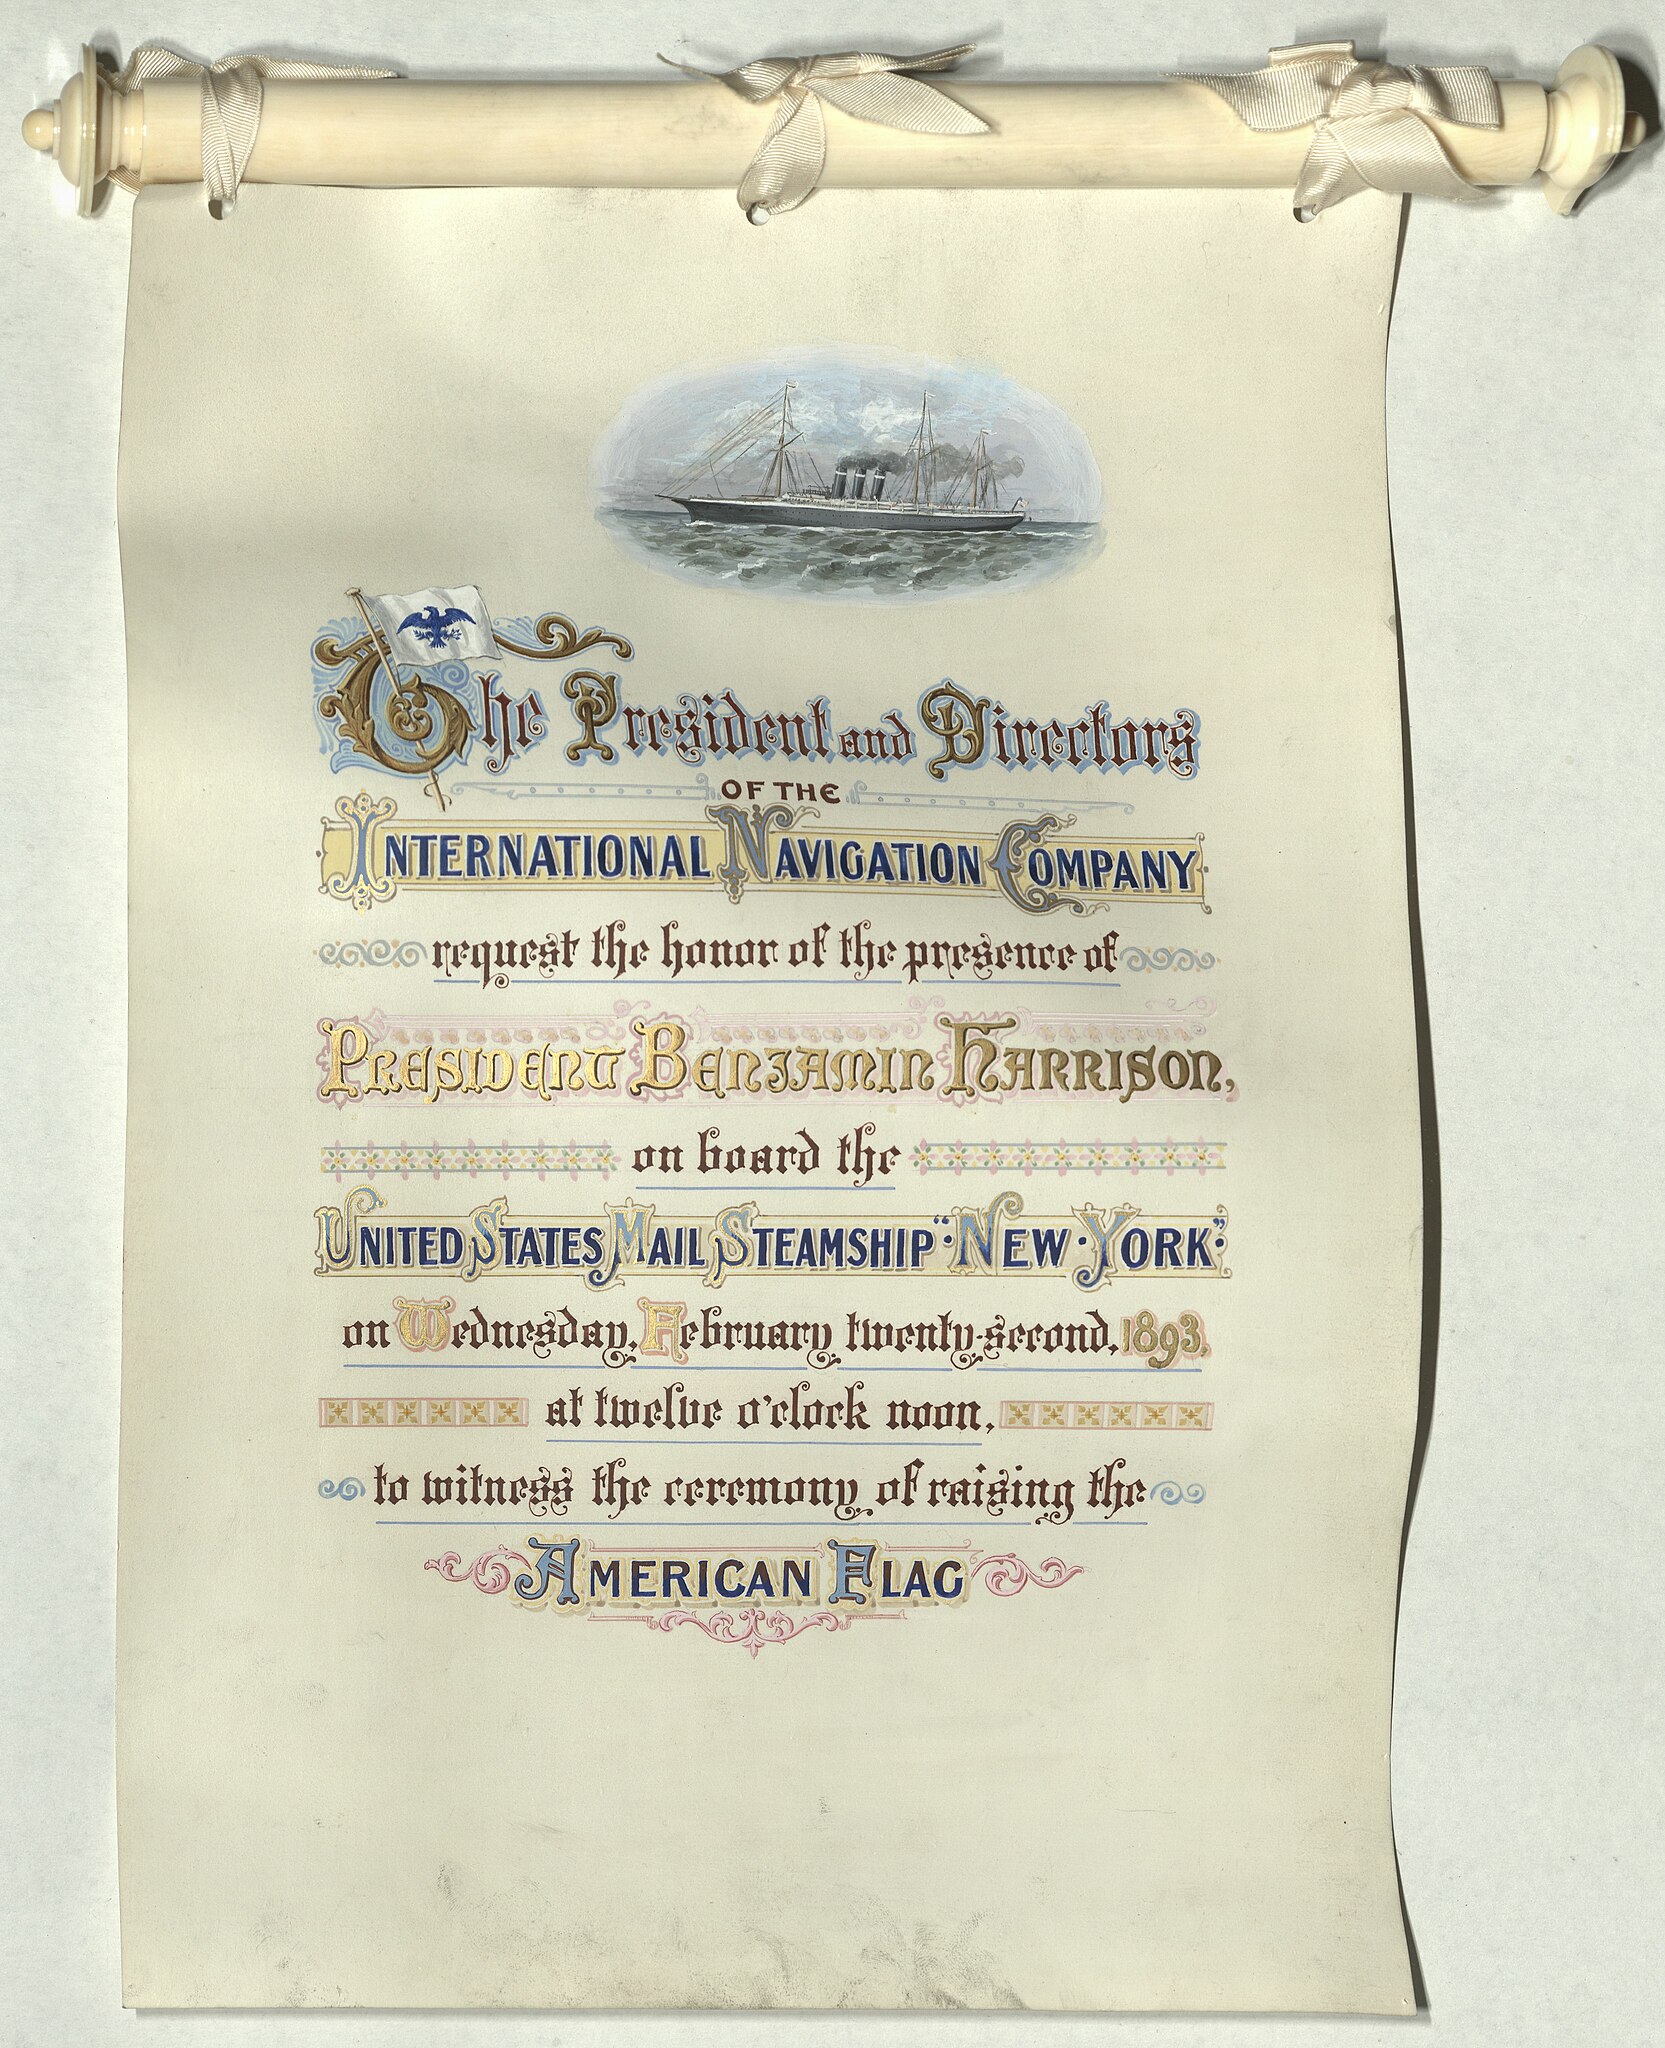 The President and Directors
OF THE
INTERNATIONAL NAVIGATION COMPANY
request the honor of the presence of
PRESIDENT BENJAMIN HARRISON,
on board the
UNITED STATES MAIL STEAMSHIP "NEW·YORK"
on Wednesday, February twenty-second, 1893,
at twelve o'clock noon,
to witness the ceremony of raising the
AMERICAN FLAG